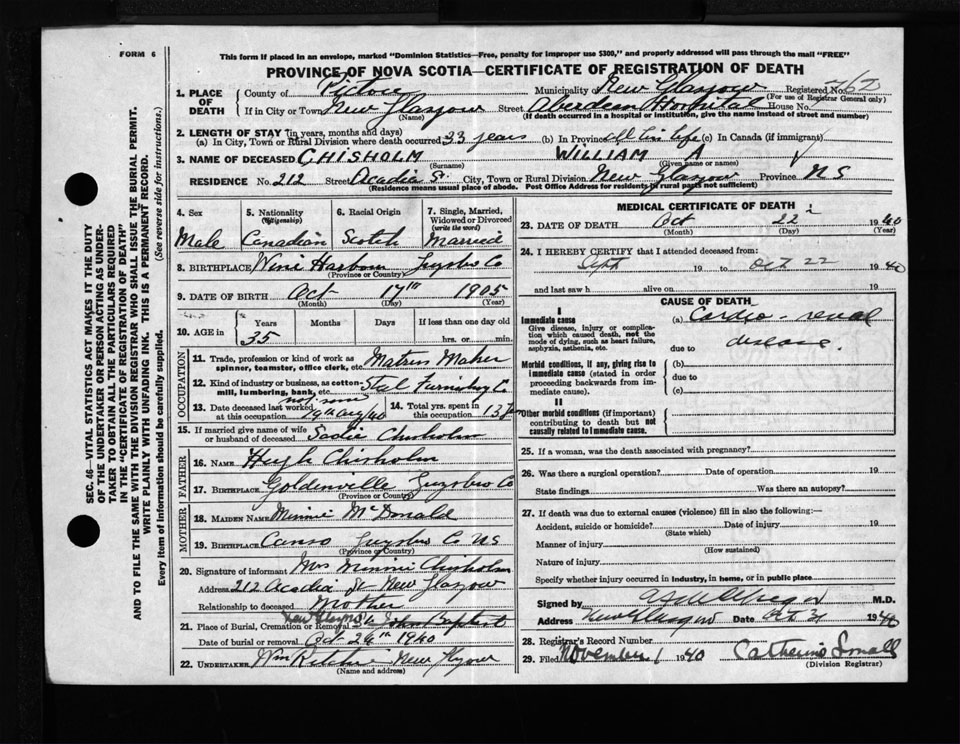 FORM 6
This form if placed in an envelope, marked "Dominion Statistics—Free, penalty for improper use $300," and properly addressed will pass through the mail "FREE"
PROVINCE OF NOVA SCOTIA—CERTIFICATE OF REGISTRATION OF DEATH
SEC. 46—VITAL STATISTICS ACT MAKES IT THE DUTY
OF THE UNDERTAKER OR PERSON ACTING AS UNDER-
TAKER TO OBTAIN ALL THE PARTICULARS REQUIRED
IN THE "CERTIFICATE OF REGISTRATION OF DEATH"
AND TO FILE THE SAME WITH THE DIVISION REGISTRAR WHO SHALL ISSUE THE BURIAL PERMIT.
WRITE PLAINLY WITH UNFADING INK. THIS IS A PERMANENT RECORD.
Every item of information should be carefully supplied. (See reverse side for instructions.)
1. PLACE OF DEATH County of Pictou Municipality New Glasgow Registered No.
(For use of Registrar General only)
If in City or Town New Glasgow Street Aberdeen Hospital House No.
(Name) (If death occurred in a hospital or institution, give the name instead of street and number)
2. LENGTH OF STAY (in years, months and days)
(a) In City, Town or Rural Division where death occurred 33 years (b) In Province All his life (c) In Canada (if immigrant)
3. NAME OF DECEASED CHISHOLM WILLIAM A
(Surname) (Given name or names)
RESIDENCE No. 212 Street Acadia St. City, Town or Rural Division New Glasgow Province NS
(Residence means usual place of abode. Post Office Address for residents in rural parts not sufficient)
4. Sex Male
5. Nationality (Citizenship) Canadian
6. Racial Origin Scotch
7. Single, Married, Widowed or Divorced (write the word) Married
8. BIRTHPLACE Wine Harbour Guysboro Co
(Province or Country)
9. DATE OF BIRTH Oct 17th 1905
(Month) (Day) (Year)
10. AGE in Years Months Days If less than one day old
35 hrs. or min.
OCCUPATION
11. Trade, profession or kind of work as spinner, teamster, office clerk, etc. Matress Maker
12. Kind of industry or business, as cotton-mill, lumbering, bank, etc.
13. Date deceased last worked at this occupation 29th Aug/40
14. Total yrs. spent in this occupation 13
15. If married give name of wife or husband of deceased Sadie Chisholm
FATHER
16. NAME Hugh Chisholm
17. BIRTHPLACE Goldenville Guysboro Co
(Province or Country)
MOTHER
18. MAIDEN NAME Minnie McDonald
19. BIRTHPLACE Canso Guysboro Co NS
(Province or Country)
20. Signature of informant Mrs Minnie Chisholm
Address 212 Acadia St New Glasgow
Relationship to deceased Mother
21. Place of Burial, Cremation or Removal New Glasgow St John Baptist
Date of burial or removal Oct 24th 1940
22. UNDERTAKER Wm Ritchie New Glasgow
(Name and address)
MEDICAL CERTIFICATE OF DEATH
23. DATE OF DEATH Oct 22 1940
(Month) (Day) (Year)
24. I HEREBY CERTIFY that I attended deceased from:
Sept 19 to Oct 22 1940
and last saw h alive on 19
CAUSE OF DEATH
I
Immediate cause (a) Cardio-renal
Give disease, injury or complication which caused death, not the mode of dying, such as heart failure, asphyxia, asthenia, etc. disease.
due to
Morbid conditions, if any, giving rise to immediate cause (stated in order proceeding backwards from immediate cause). (b)
due to
(c)
II
Other morbid conditions (if important) contributing to death but not causally related to immediate cause.
25. If a woman, was the death associated with pregnancy?
26. Was there a surgical operation? Date of operation 19
State findings Was there an autopsy?
27. If death was due to external causes (violence) fill in also the following:—
Accident, suicide or homicide? Date of injury 19
(State which)
Manner of injury
(How sustained)
Nature of injury
Specify whether injury occurred in industry, in home, or in public place
Signed by M.D.
Address New Glasgow Date Oct 31 1940
28. Registrar's Record Number
29. Filed November 1 1940 Catherine Small
(Division Registrar)